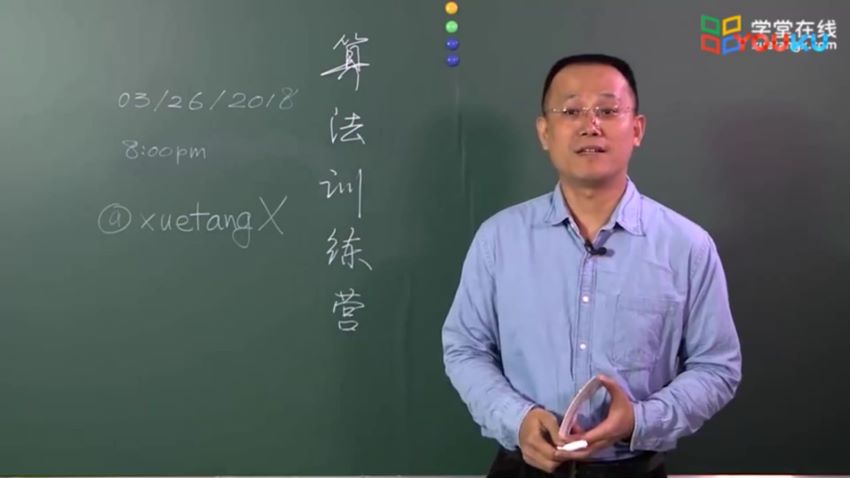 03/26/2018
8:00pm
@xuetangX
算法训练营
学堂在线
YOUKU